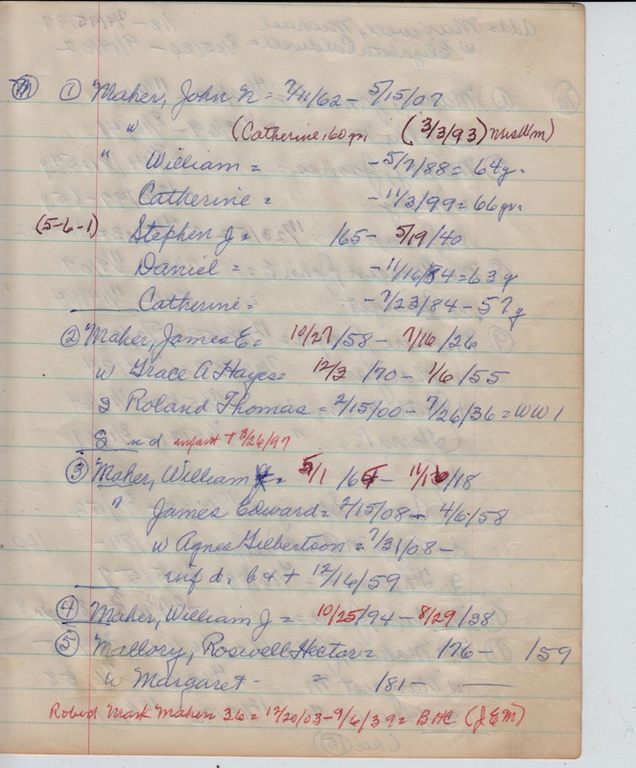 (M) ① Maher, John N = 7/11/62 - 5/15/07
w (Catherine, 60 (3/3/93)
" William = - 5/7/88 = 64y.
Catherine = - 11/3/99 = 66yr.
(5-6-1) Stephen J = /65 - 5/19/40
Daniel = - 11/16/84 = 63y
Catherine = - 7/23/84 - 57y
② Maher, James E = 10/27/58 - 7/16/26
w Grace A Hayes = 12/3 /70 - 1/6/55
S Roland Thomas = 2/15/00 - 7/26/36 = WW 1
d infant + 3/26/97
③ Maher, William = 5/1 /65 - /18
" James Edward = 2/15/08 - 4/6/58
w Agnes Gilbertson = 7/31/08 -
inf d. b & + 12/16/59
④ Maher, William J = 10/25/94 - 8/29/38
⑤ Mallory, Roswell Hector = /76 - /59
w Margaret - = /81 -
Robert Mark Maher 36 = 12/20/03 - 9/6/39 = (J E M)